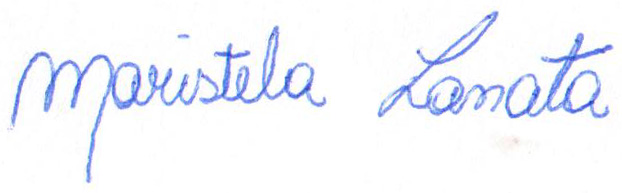 Maristela Lanata